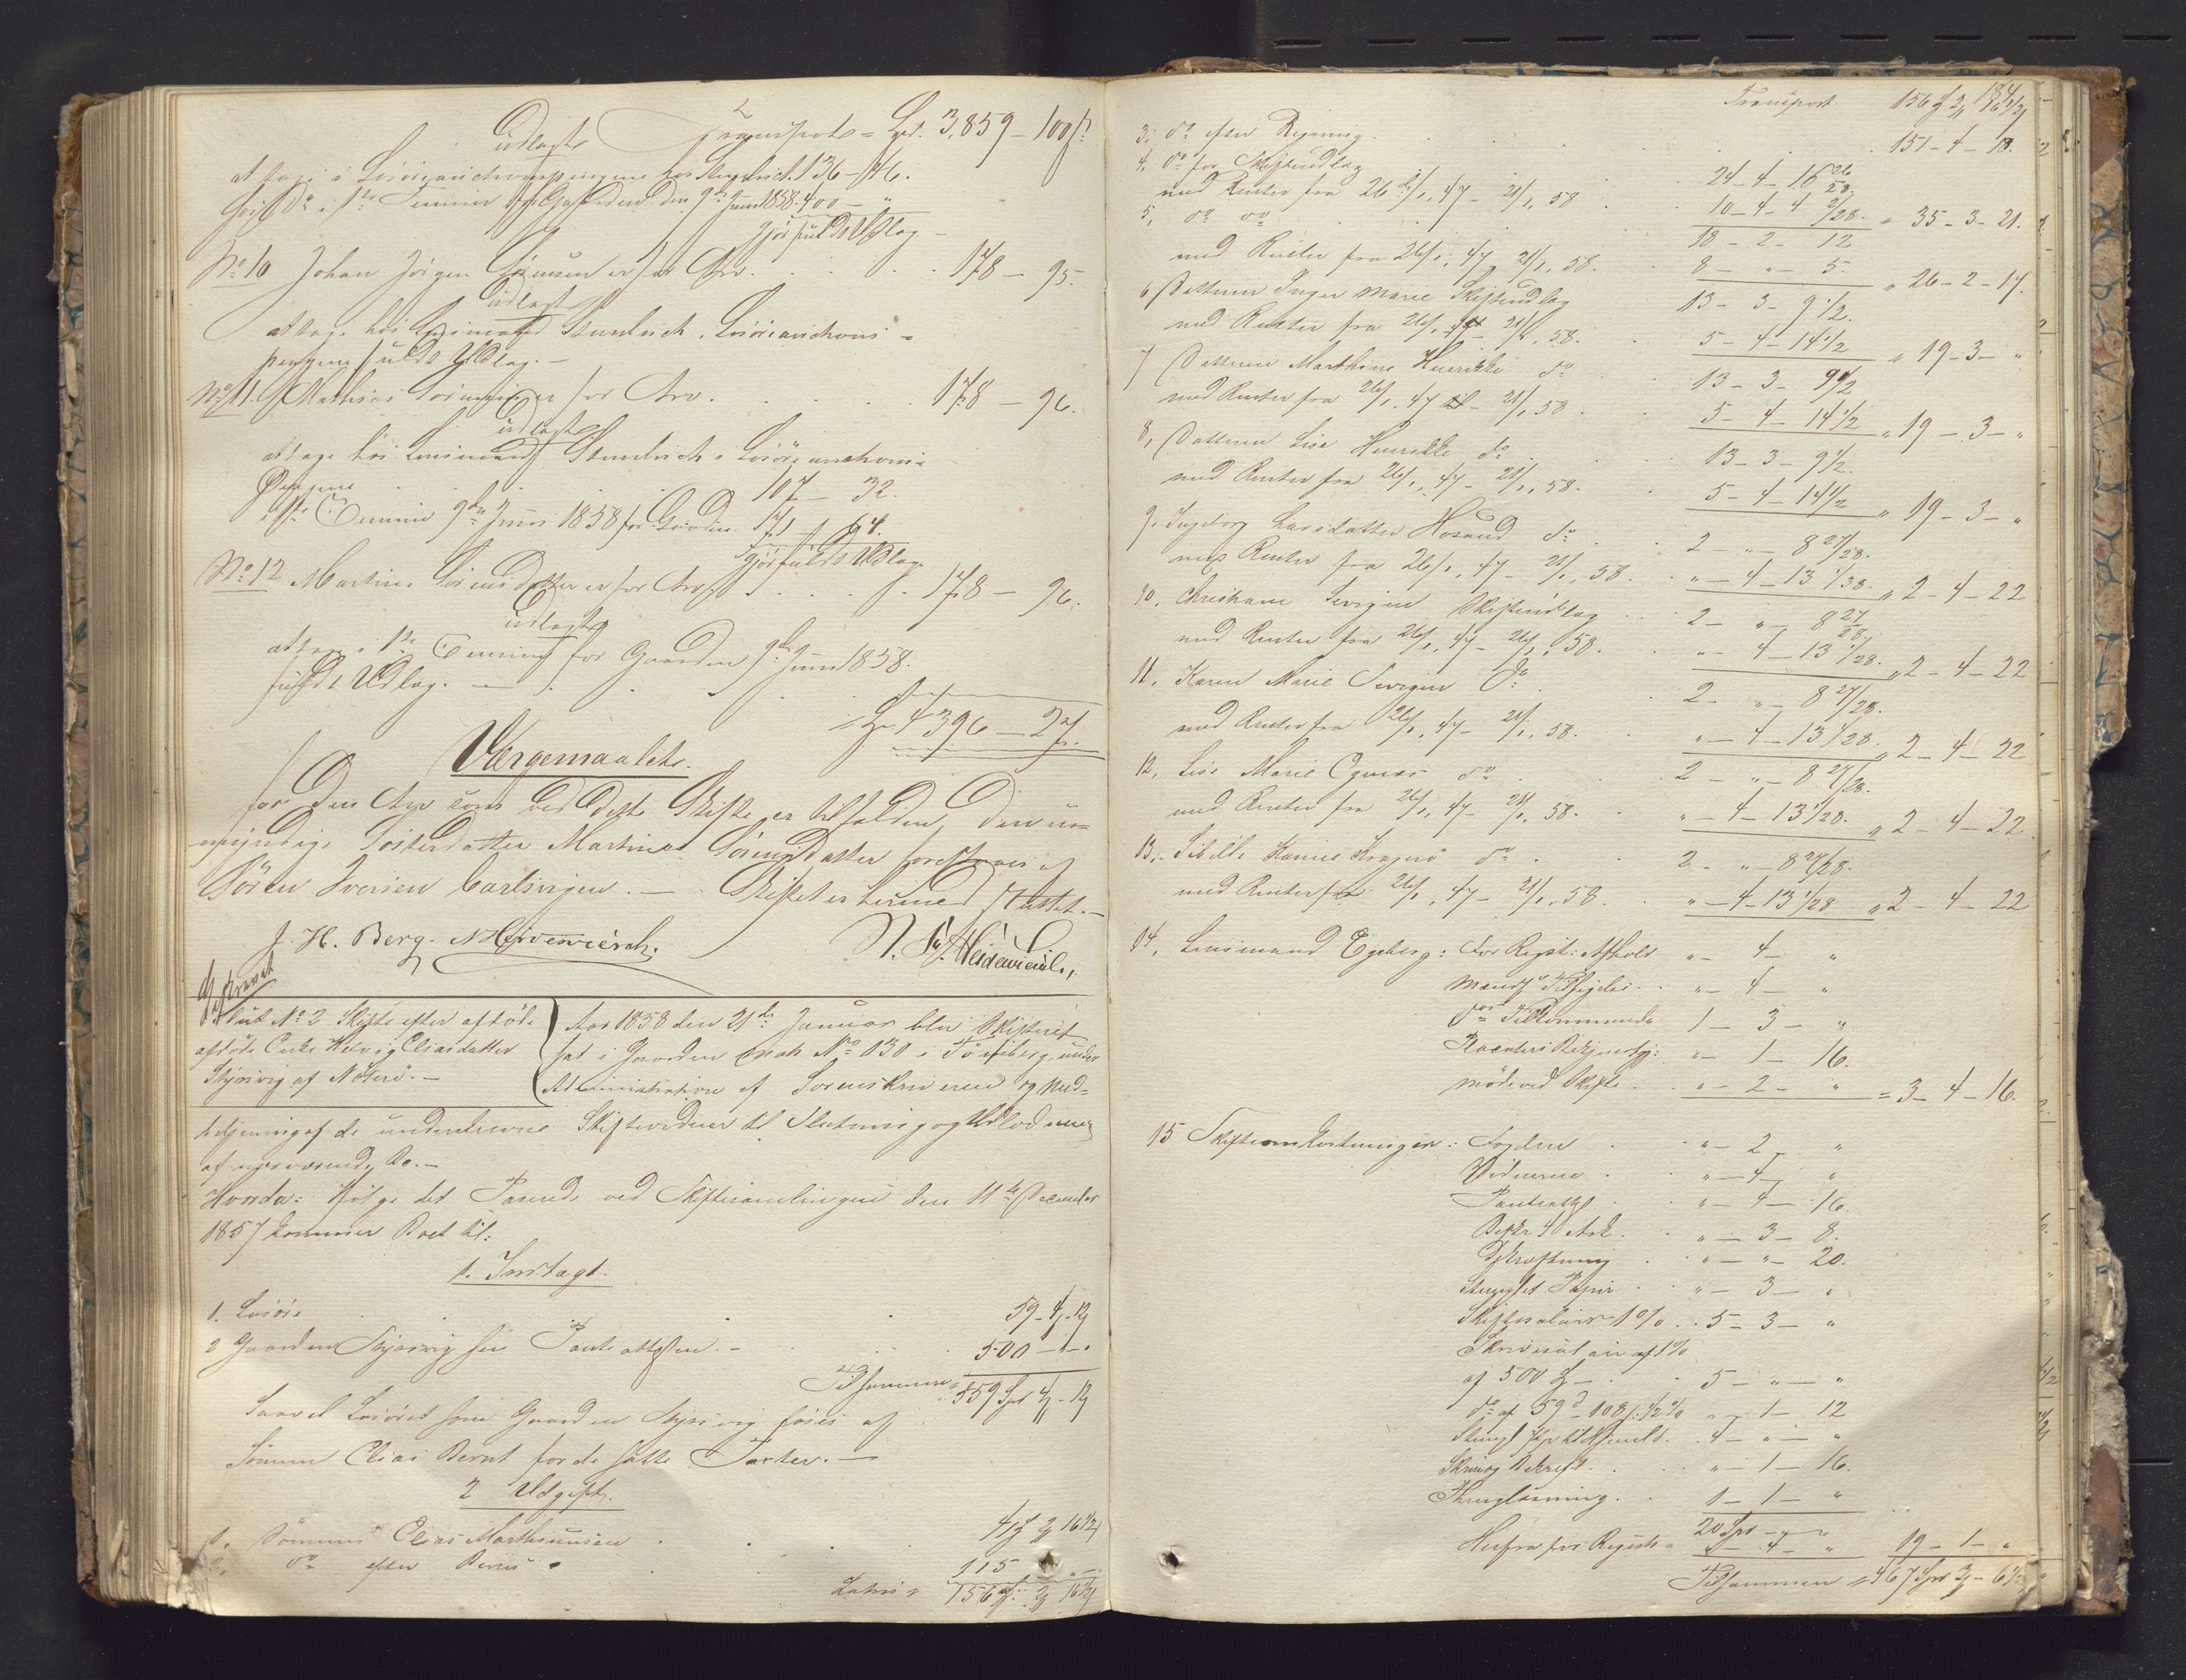 Transport = Spd. 3,859 – 100 ß
udlagt
at tage i Løsøreauctionspengene hos Stenbrich. 136 – 46.
hos Do i 1ste Termin for Gaarden den 9de Juni 1858. 400 – "
gjør fuldt Udlag –
No 10 Johan Jørgen Sørensen er for Arv . . . . 178 – 95.
udlagt
at tage hos Lensmand Stenbrich i Løsøreauctions-
pengene fuldt Udlag. –
No 11. Mathias Sørensen er for Arv . . . . 178 – 96.
udlagt
at tage hos Lensmand Stenbrich i Løsøreauctions-
Pengene . . . . 107 – 32.
i 1ste Termin 9de Juni 1858 for Gaarden. 71 – 64.
gjør fuldt Udlag.
No 12 Martine Sørensdatter er for Arv . . . . 178 – 96.
udlagt
at tage i 1ste Termin for Gaarden 9de Juni 1858.
fuldt Udlag. –
Spd. 4396 – 27.
Værgemaalet.
for den Arv som ved dette Skifte er tilfalden den u-
myndige Søsterdatter Martine Sørensdatter forestaaes af
Søren Iversen Carlsvigen. – Skiftet er hermed sluttet. –
J. H. Berg. N. Heidenreich.
Beskrevet
Slut No 2 Skifte efter afdøde
afdøde Enke Helvig Eliasdatter
Skjærsvig af Nøterø. –
Aar 1858 den 21de Januar blev Skifteret
sat i Gaarden mat No 130 i Tønsberg under
Administration af Sorenskriveren og Med-
betjening af de underskrevne Skiftevidner til Slutning og Udlodning
af nærværende Bo. –
Hvorda: Ifølge det Passerede ved Skiftesamlingen den 11te December
1857 kommer Boet til:
1. Indtægt.
1. Løsøre . . . 59 – 4 – 12
2 Gaarden Skjærsvig . . . 500 – " – "
Tilsammen = 559 Spd 4 – 12
Saavel Løsøret som Gaarden Skjærsvig føres af
Sønnen Elias Bernt for de satte Taxter. –
2 Udgift.
1. Sønnen Elias Marthinusen . . . 41 2 16 1/2
2. do efter Beviis . 115 " –
Latus = 156 2 16 1/2
184
Transport 156 2 16 1/2
3. do efter Regning . . . 151 – 4 – 18.
4. do for Skifteudlæg . . . 24 – 4 – 16 26/28
med Renter fra 26/1. 47 – 21/1. 58 . . 10 – 4 – 4 2/28. = 35 – 3 – 21.
5, do do . . . 18 – 2 – 12
med Renter fra 26/1. 47 21/1. 58. . . 8 – " – 5. " 26 – 2 – 17.
6 Datteren Inger Marie Skifteudlæg 13 – 3 – 9 1/2.
med Renter fra 26/1. 47 – 21/1. 58. . 5 – 4 – 14 1/2 " 19 – 3 – "
7 Datteren Marthine Henrikke do . 13 – 3 – 9 1/2
med Renter fra 26/1. 47 – 21/1. 58 . . 5 – 4 – 14 1/2 " 19 – 3 – "
8, Datteren Lise Henrikke do . . 13 – 3 – 9 1/2.
med Renter fra 26/1. 47 – 21/1. 58. . 5 – 4 – 14 1/2 " 19 – 3 – "
9. Ingeborg Larsdatter Hosand do . . 2 – " – 8 27/28.
med Renter fra 26/1. 47 – 21/1. 58. . " – 4 – 13 1/28. " 2 – 4 – 22
10. Christiane Skifteudlæg . . 2 – " – 8 27/28.
med Renter fra 26/1. 47 – 21/1. 58. . " – 4 – 13 1/28. " 2 – 4 – 22
11. Karen Marie do . . 2 – " – 8 27/28.
med Renter fra 26/1. 47 – 21/1. 58. . " – 4 – 13 1/28. " 2 – 4 – 22
12. Lise Marie do . . 2 – " – 8 27/28.
med Renter fra 26/1. 47 – 21/1. 58. . " – 4 – 13 1/28. " 2 – 4 – 22
13. Kragerø do . . 2 – " – 8 27/28.
med Renter fra 26/1. 47 – 21/1. 58. . " – 4 – 13 1/28 " 2 – 4 – 22
14. Lensmand Egeberg: For Regist: Afhold " – 4 – "
" – 4 – "
1 – 3 – "
" – 1 – 16.
møde ved Skifte . " – 2 – " = 3 – 4 – 16.
15 Skifteomkostninger: Fogden . . " – 2 – "
Vidnerne . . " – 4 – "
Panteattest . . " – 4 – 16.
Beskr 4 Ark. . " – 3 – 8.
Bekræftning . " – " – 20.
Stemplet Papir . " – 3 – "
Skiftesalair 1% . . 5 – 3 – "
Skriversalair af 1%
af 500 – . 5 – " – "
do af 59 – 108 ß 1/2 % " – 1 – 12
. 4 – " – "
Skriv og Bekræft. . " – 1 – 16.
Thinglæsning. . 1 – 1 – "
20 Spd – " – "
Herfra for Regist = " – 4 – " 19 – 1 – "
Tilsammen = 467 Spd 3 – 6 1/2